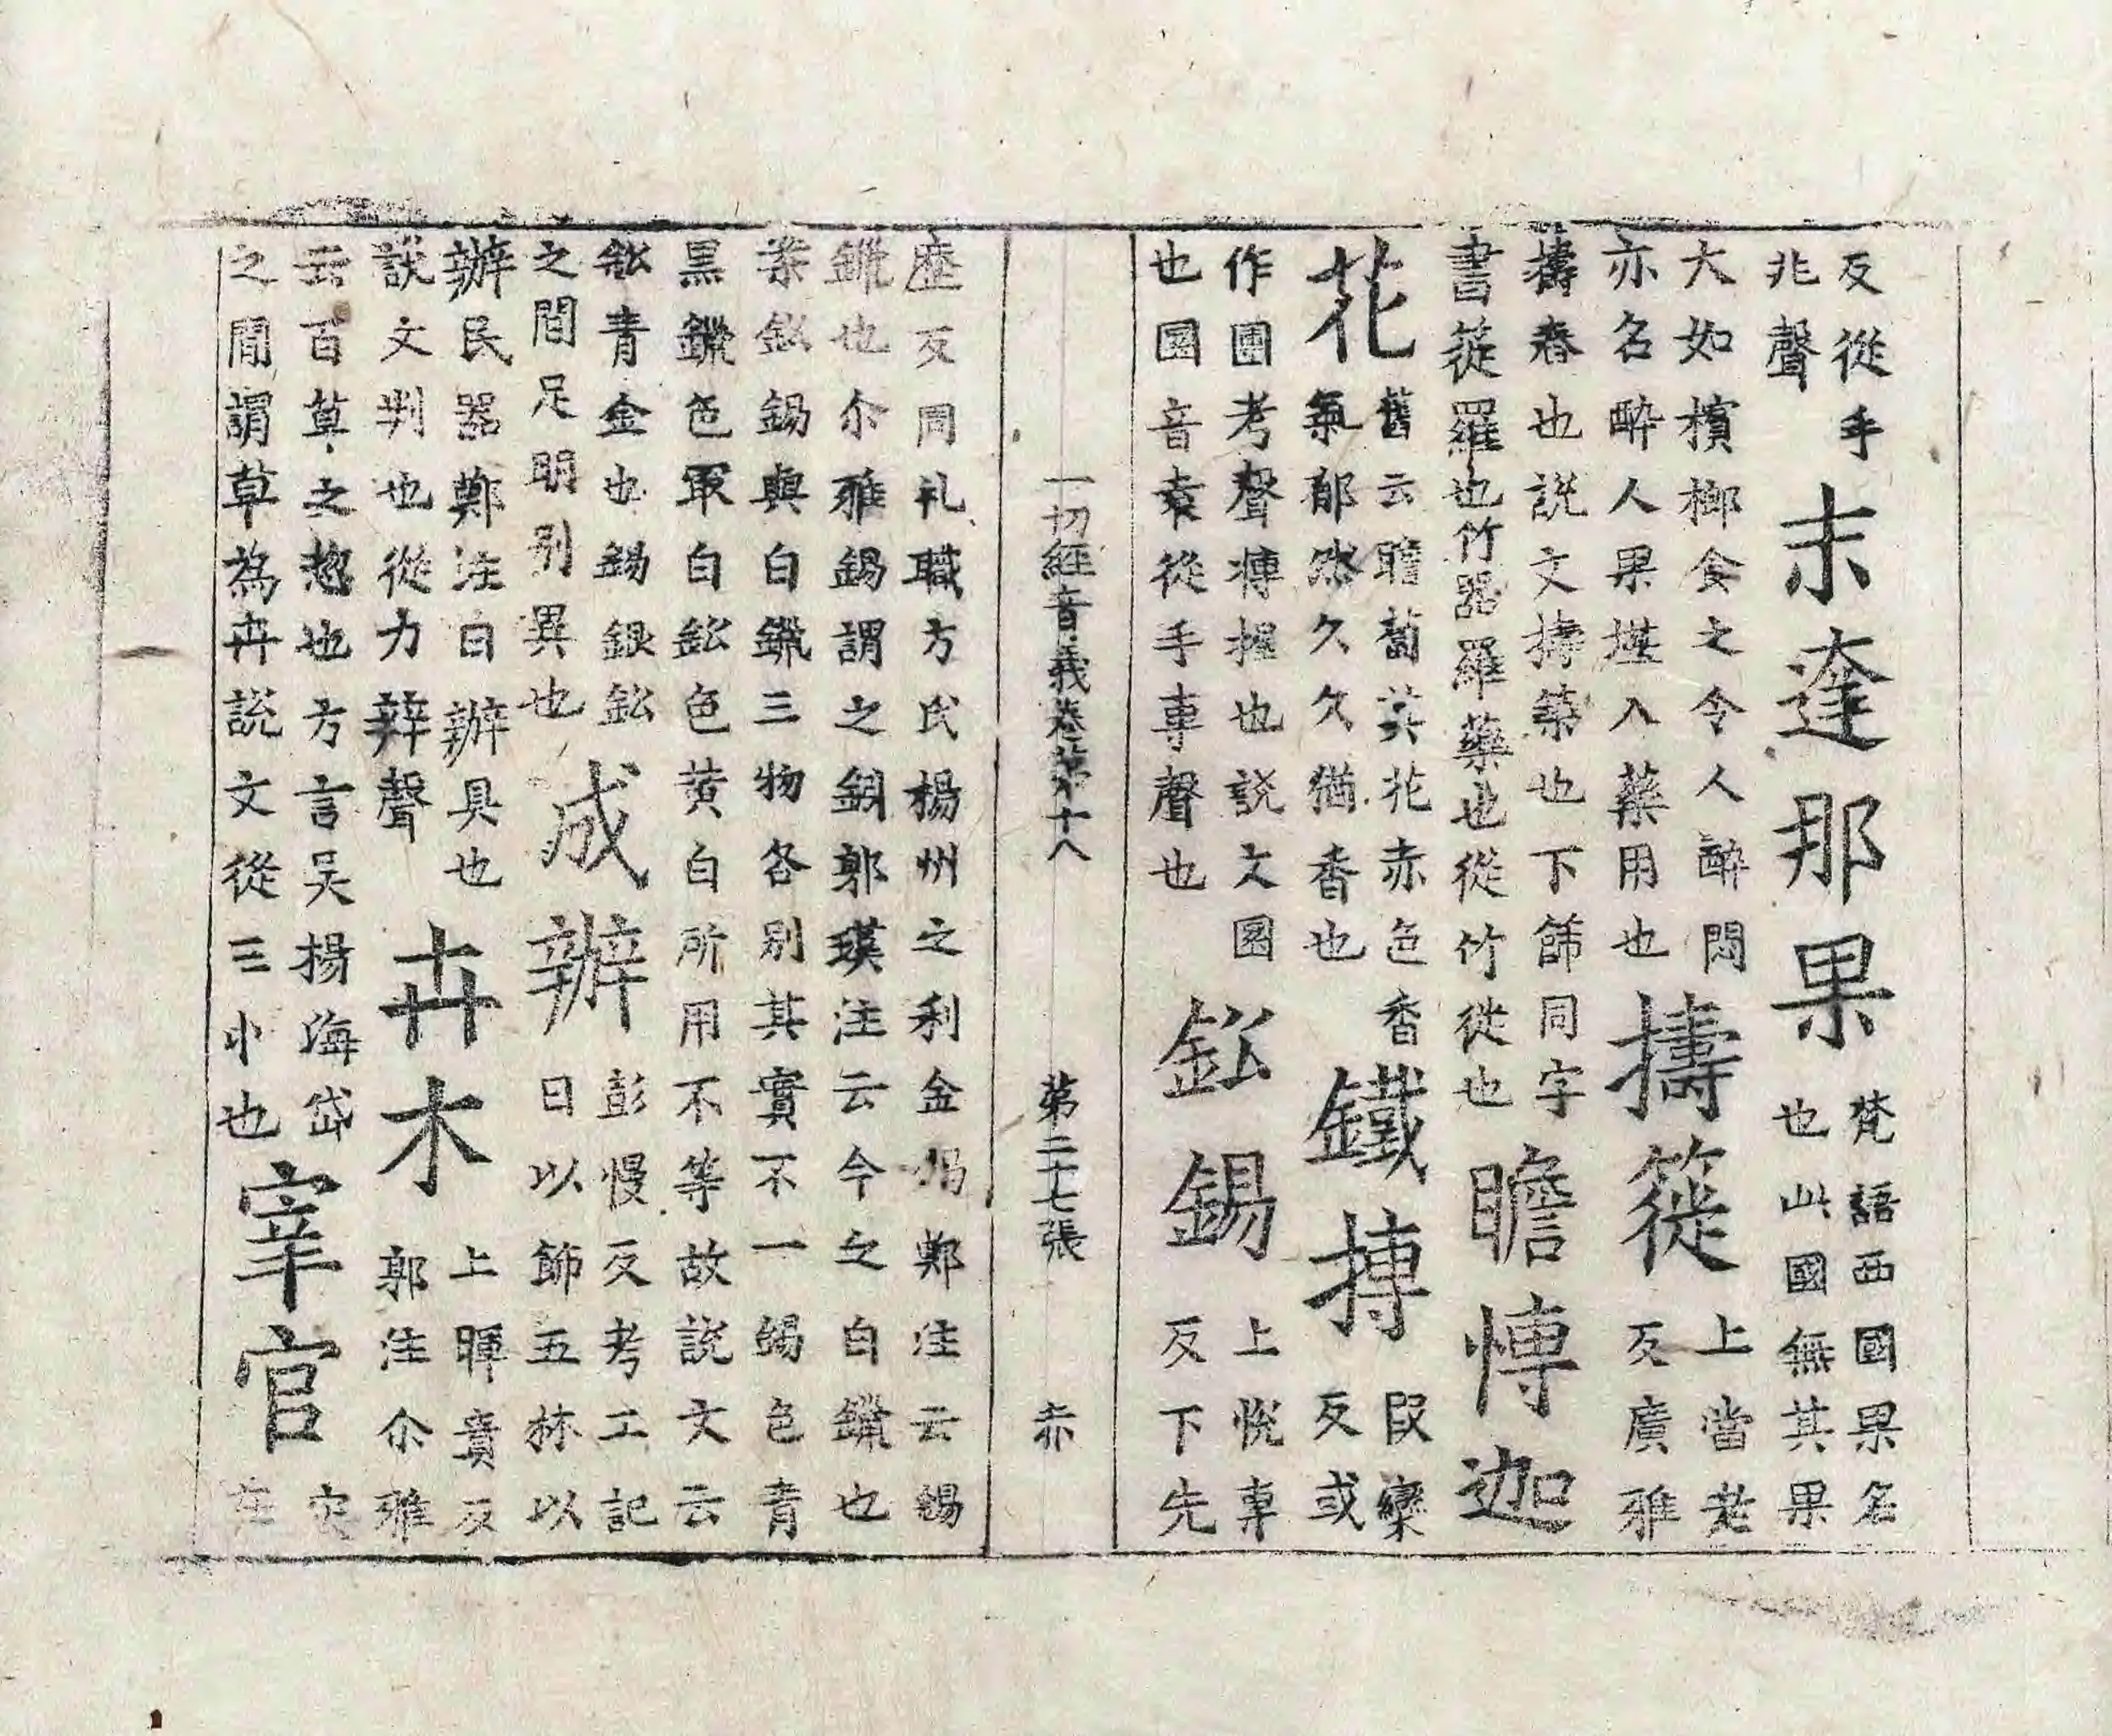 反從手
兆聲
末達那果
梵語西國果名
也此國無其果
大如檳榔食之令人醉悶
亦名醉人果堪入藥用也
擣簁
上當老
反廣雅
擣舂也説文擣築也下篩同字
書簁羅也竹器羅藥也從竹徙也
瞻愽迦
花
舊云瞻蔔英花赤色香
氣郁然久久猶香也
鐵摶
段欒
反或
作團考聲摶握也説文圓
也圓音袁從手專聲也
鈆錫
上恱專
反下先
一切經音義卷第十八 第二十七張 赤
歷反周礼職方氏楊州之利金錫鄭注云錫
鑞也尒雅錫謂之鈏郭璞注云今之白鑞也
案鈆錫與白鑞三物各別其實不一錫色青
黑鑞色最白鈆色黃白所用不等故説文云
鈆青金也錫銀鈆
之間足明別異也
成辦
彭慢反考工記
曰以飾五材以
辦民器鄭注曰辦具也
説文判也從力辡聲
卉木
上暉貴反
郭注尒雅
云百草之惣也方言吴揚海岱
之間謂草為卉説文從三屮也
宰官
灾
在